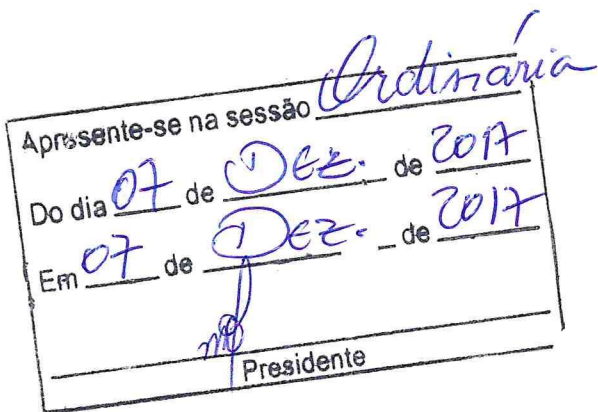 Apresente-se na sessão Ordinária
Do dia 07 de DEZ. de 2017
Em 07 de DEZ. de 2017
Presidente